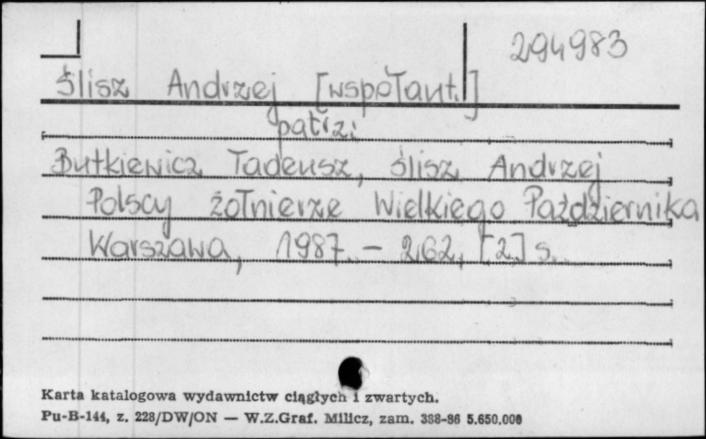 294983
Ślisz Andrzej [współaut.]
patrz:
Butkiewicz Tadeusz, Ślisz Andrzej
Polscy żołnierze Wielkiego Października
Warszawa, 1987. - 262, [2] s.
Karta katalogowa wydawnictw ciągłych i zwartych.
Pu-B-144, z. 228/DW/ON — W.Z.Graf. Milicz, zam. 388-86 5.650.000